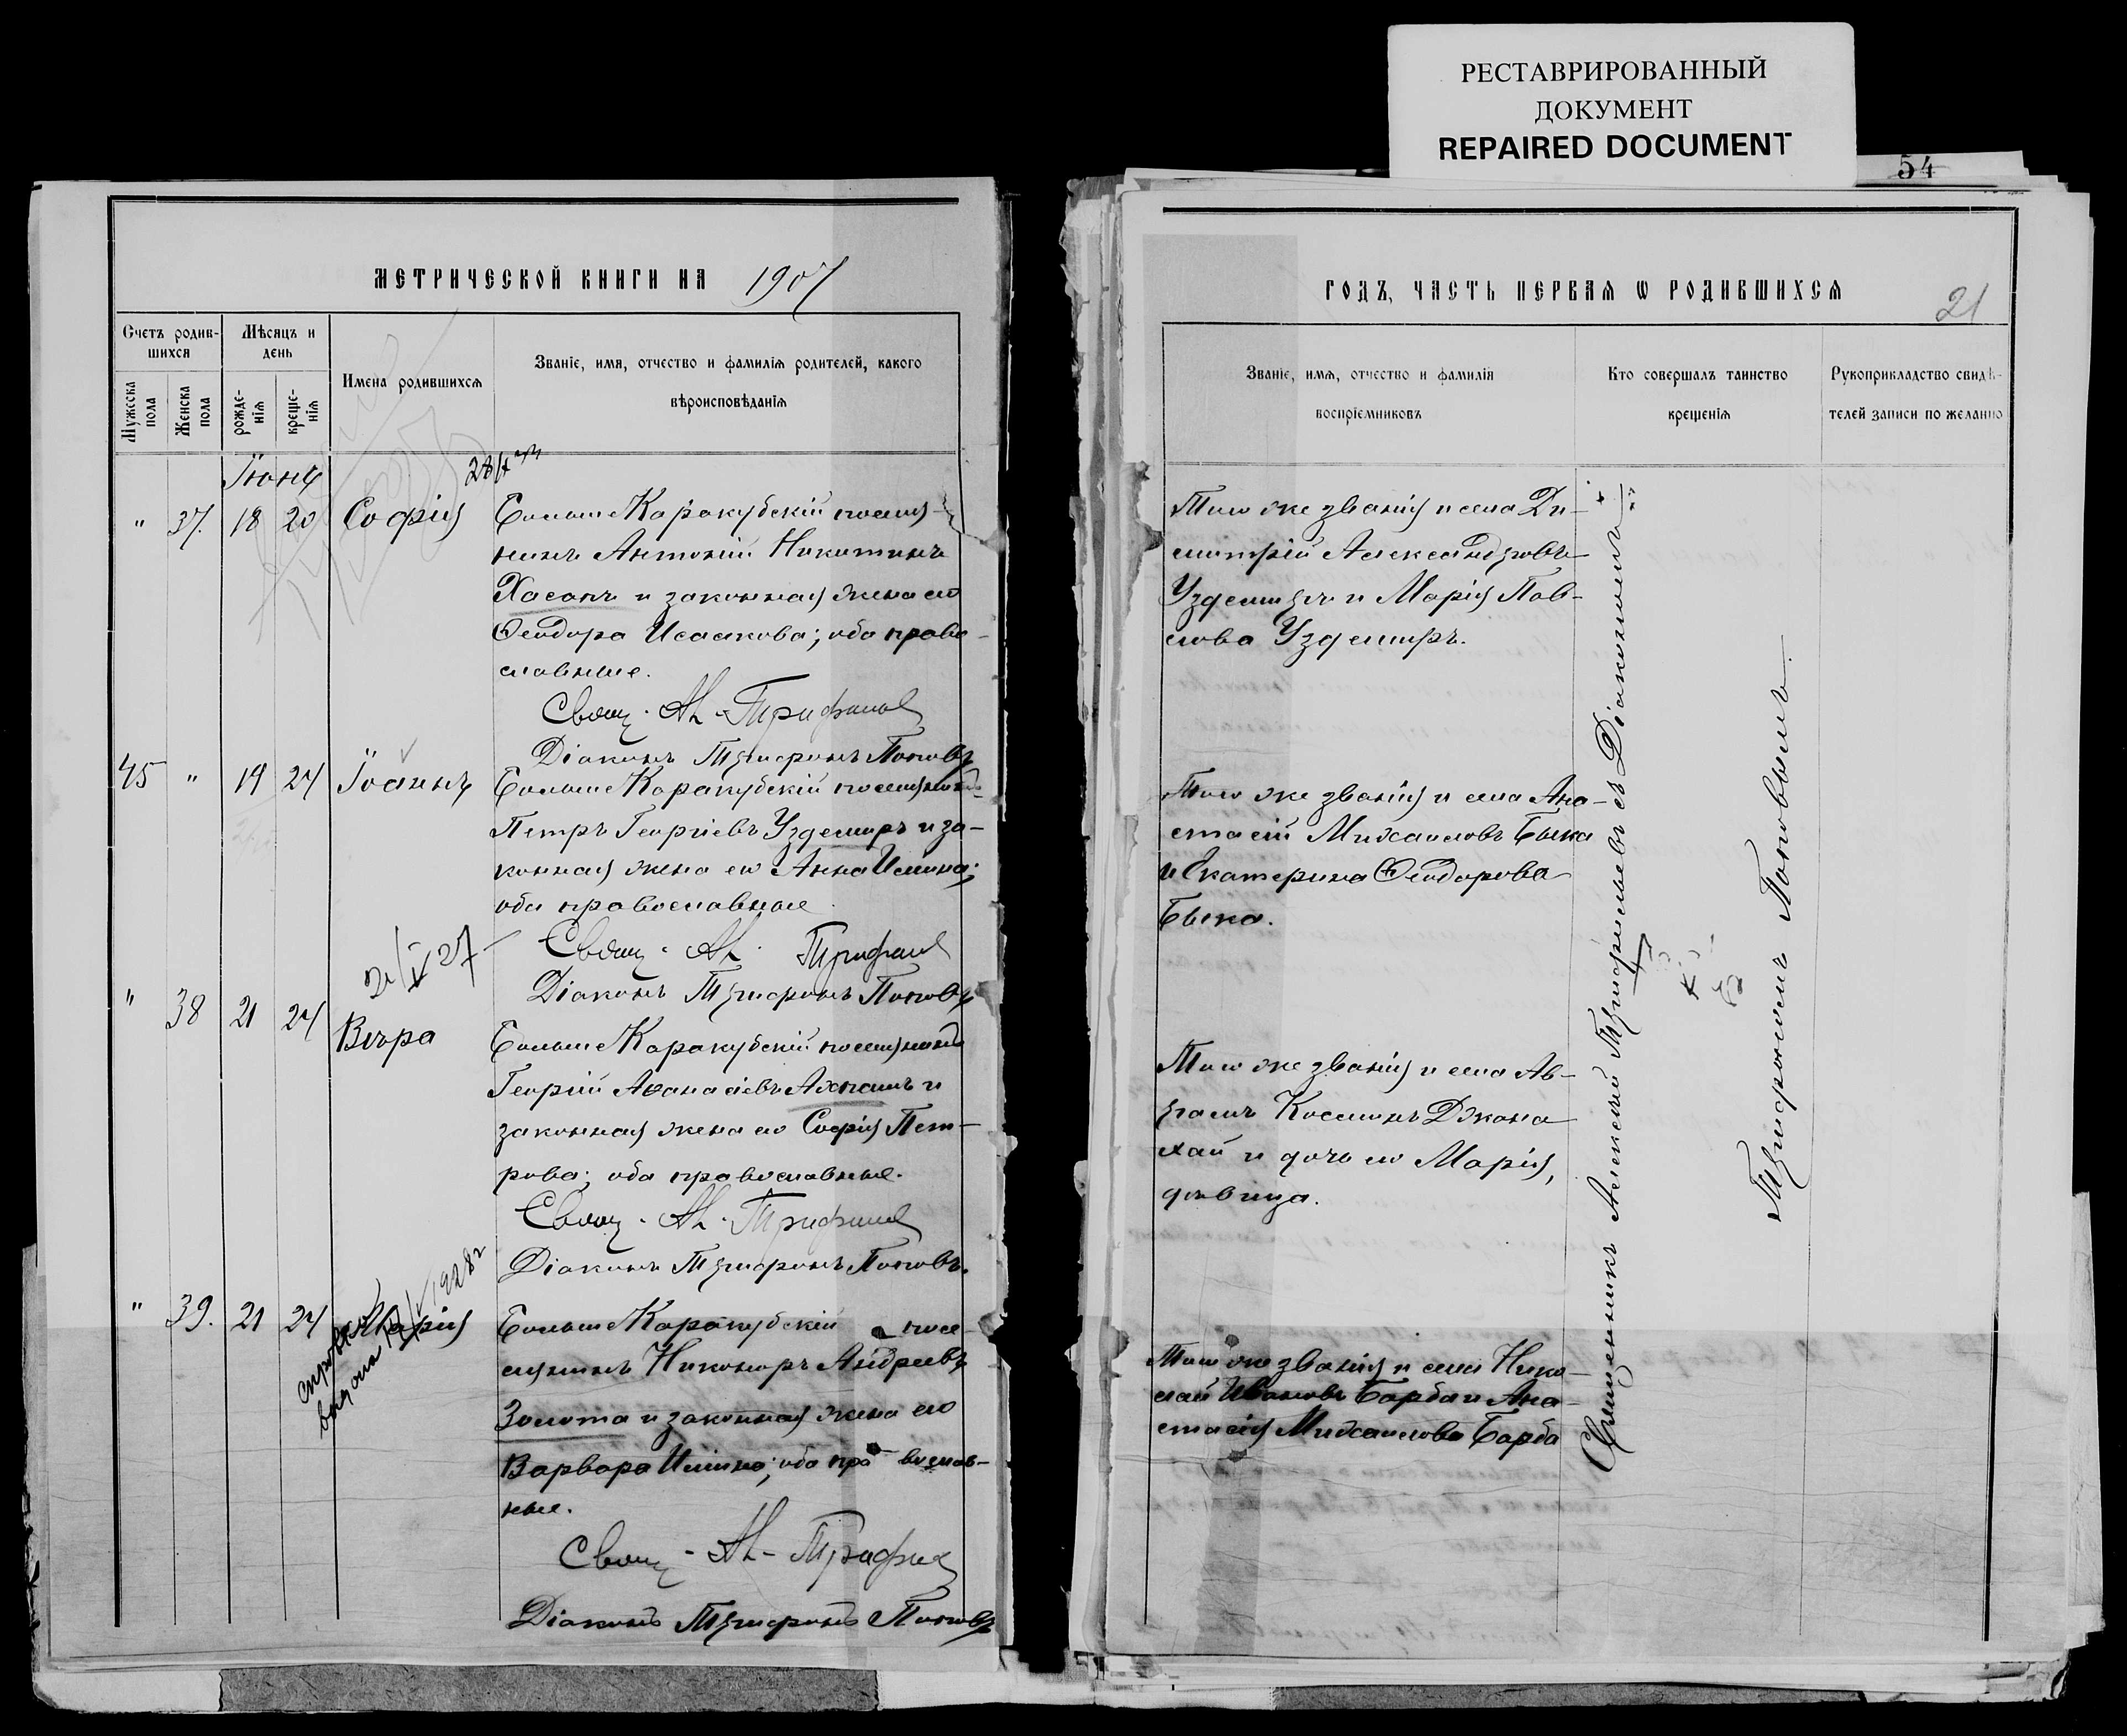 РЕСТАВРИРОВАННЫЙ
ДОКУМЕНТ
REPAIRED DOCUMENT
54
МЕТРИЧЕСКОЙ КНИГИ НА 1907
Счетъ родив-
шихся
Мужеска пола
Женска пола
Мѣсяцъ и
день
рожде-
нія
креще-
нія
Имена родившихся
Званіе, имя, отчество и фамилія родителей, какого
вѣроисповѣданія
Іюнь
" 37. 18 20 Софія
Больше Каракубскій поселя-
нинъ Антоній Никитинъ
Хасапъ и законная жена его
Ѳеодора Исаакова; оба право-
славные.
Свящ. Ал. Трифильев
Діаконъ Трифонъ Поповъ
45 " 19 24 Іоаннъ
Больше Каракубскій поселянинъ
Петръ Георгіевъ Уздемиръ и за-
конная жена его Анна Ильина;
оба православные
Свящ. Ал. Трифильев
Діаконъ Трифонъ Поповъ
" 38 21 24 Вѣра
Больше Каракубскій поселянинъ
Георгій Аѳанасіевъ Ахпашъ и
законная жена его Софія Пет-
рова; оба православные.
Свящ. Ал. Трифильев
Діаконъ Трифонъ Поповъ.
1928г
справка
выдана
" 39. 21 24 Марія
Больше Каракубскій посе-
лянинъ Никаноръ Андреевъ
Золота и законная жена его
Варвара Ильина; оба православ-
ные.
Свящ. Ал. Трифильев
Діаконъ Трифонъ Поповъ
ГОДЪ, ЧАСТЬ ПЕРВАЯ Ѡ РОДИВШИХСЯ
21
Званіе, имя, отчество и фамилія
воспріемниковъ
Кто совершалъ таинство
крещенія
Рукоприкладство свидѣ-
телей записи по желанію
Того же званія и села Ди-
митрій Александровъ
Уздемиръ и Марія Пав-
лова Уздемиръ.
Того же званія и села Ана-
стасій Михаиловъ Быка
и Екатерина Ѳеодорова
Быка.
Того же званія и села Ав-
раамъ Косминъ Джана
хай и дочь его Марія,
дѣвица.
Того же званія и села Нико-
лай Ивановъ Барба и Ана-
стасія Михаилова Барба
Священникъ Алексій Трифильевъ съ Діакономъ
Трифономъ Поповымъ.